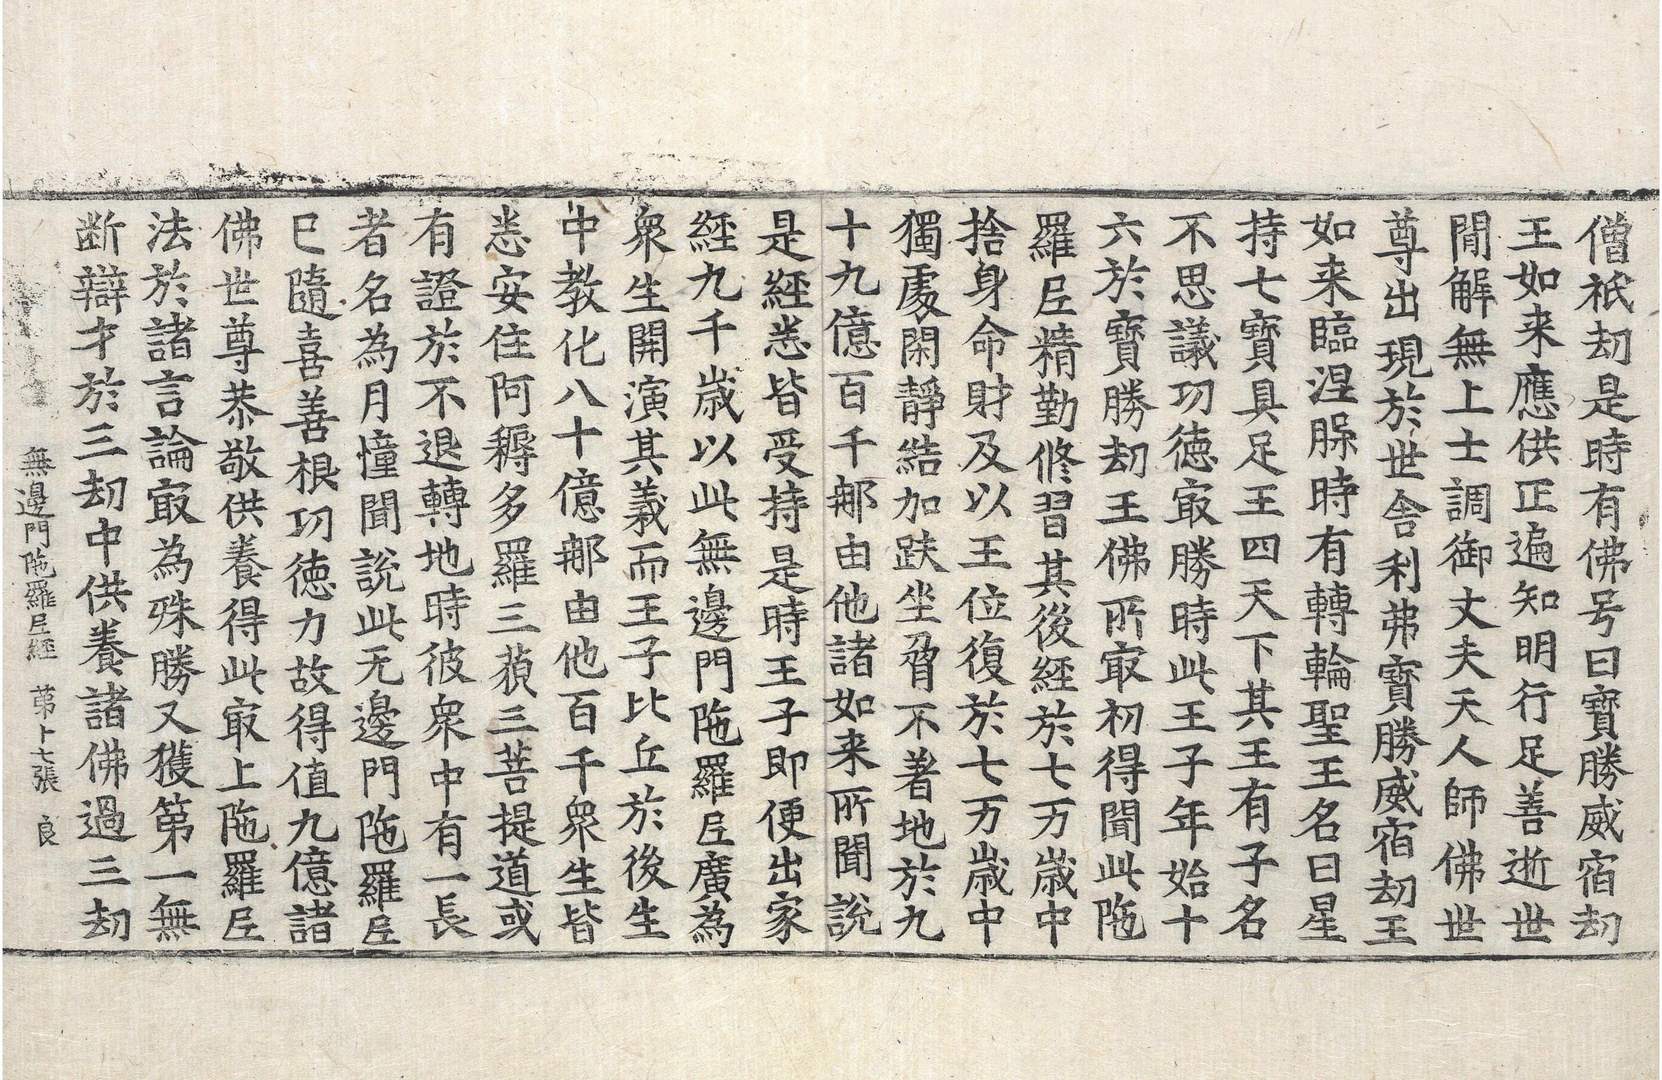 僧祇劫是時有佛号曰寶勝威宿劫
王如来應供正遍知明行足善逝世
間解無上士調御丈夫天人師佛世
尊出現於世舍利弗寶勝威宿劫王
如来臨涅槃時有轉輪聖王名曰星
持七寶具足王四天下其王有子名
不思議功徳㝡勝時此王子年始十
六於寶勝劫王佛所㝡初得聞此陁
羅尼精勤修習其後經於七万歳中
捨身命財及以王位復於七万歳中
獨處閑静結加趺坐脅不著地於九
十九億百千那由他諸如来所聞說
是經悉皆受持是時王子即便出家
經九千歳以此無邊門陁羅尼廣為
衆生開演其義而王子比丘於後生
中教化八十億那由他百千衆生皆
悉安住阿耨多羅三藐三菩提道或
有證於不退轉地時彼衆中有一長
者名為月幢聞說此无邊門陁羅尼
已隨喜善根功徳力故得值九億諸
佛世尊恭敬供養得此㝡上陁羅尼
法於諸言論㝡為殊勝又獲第一無
断辯才於三劫中供養諸佛過三劫
無邊門陁羅尼經 第十七張 良